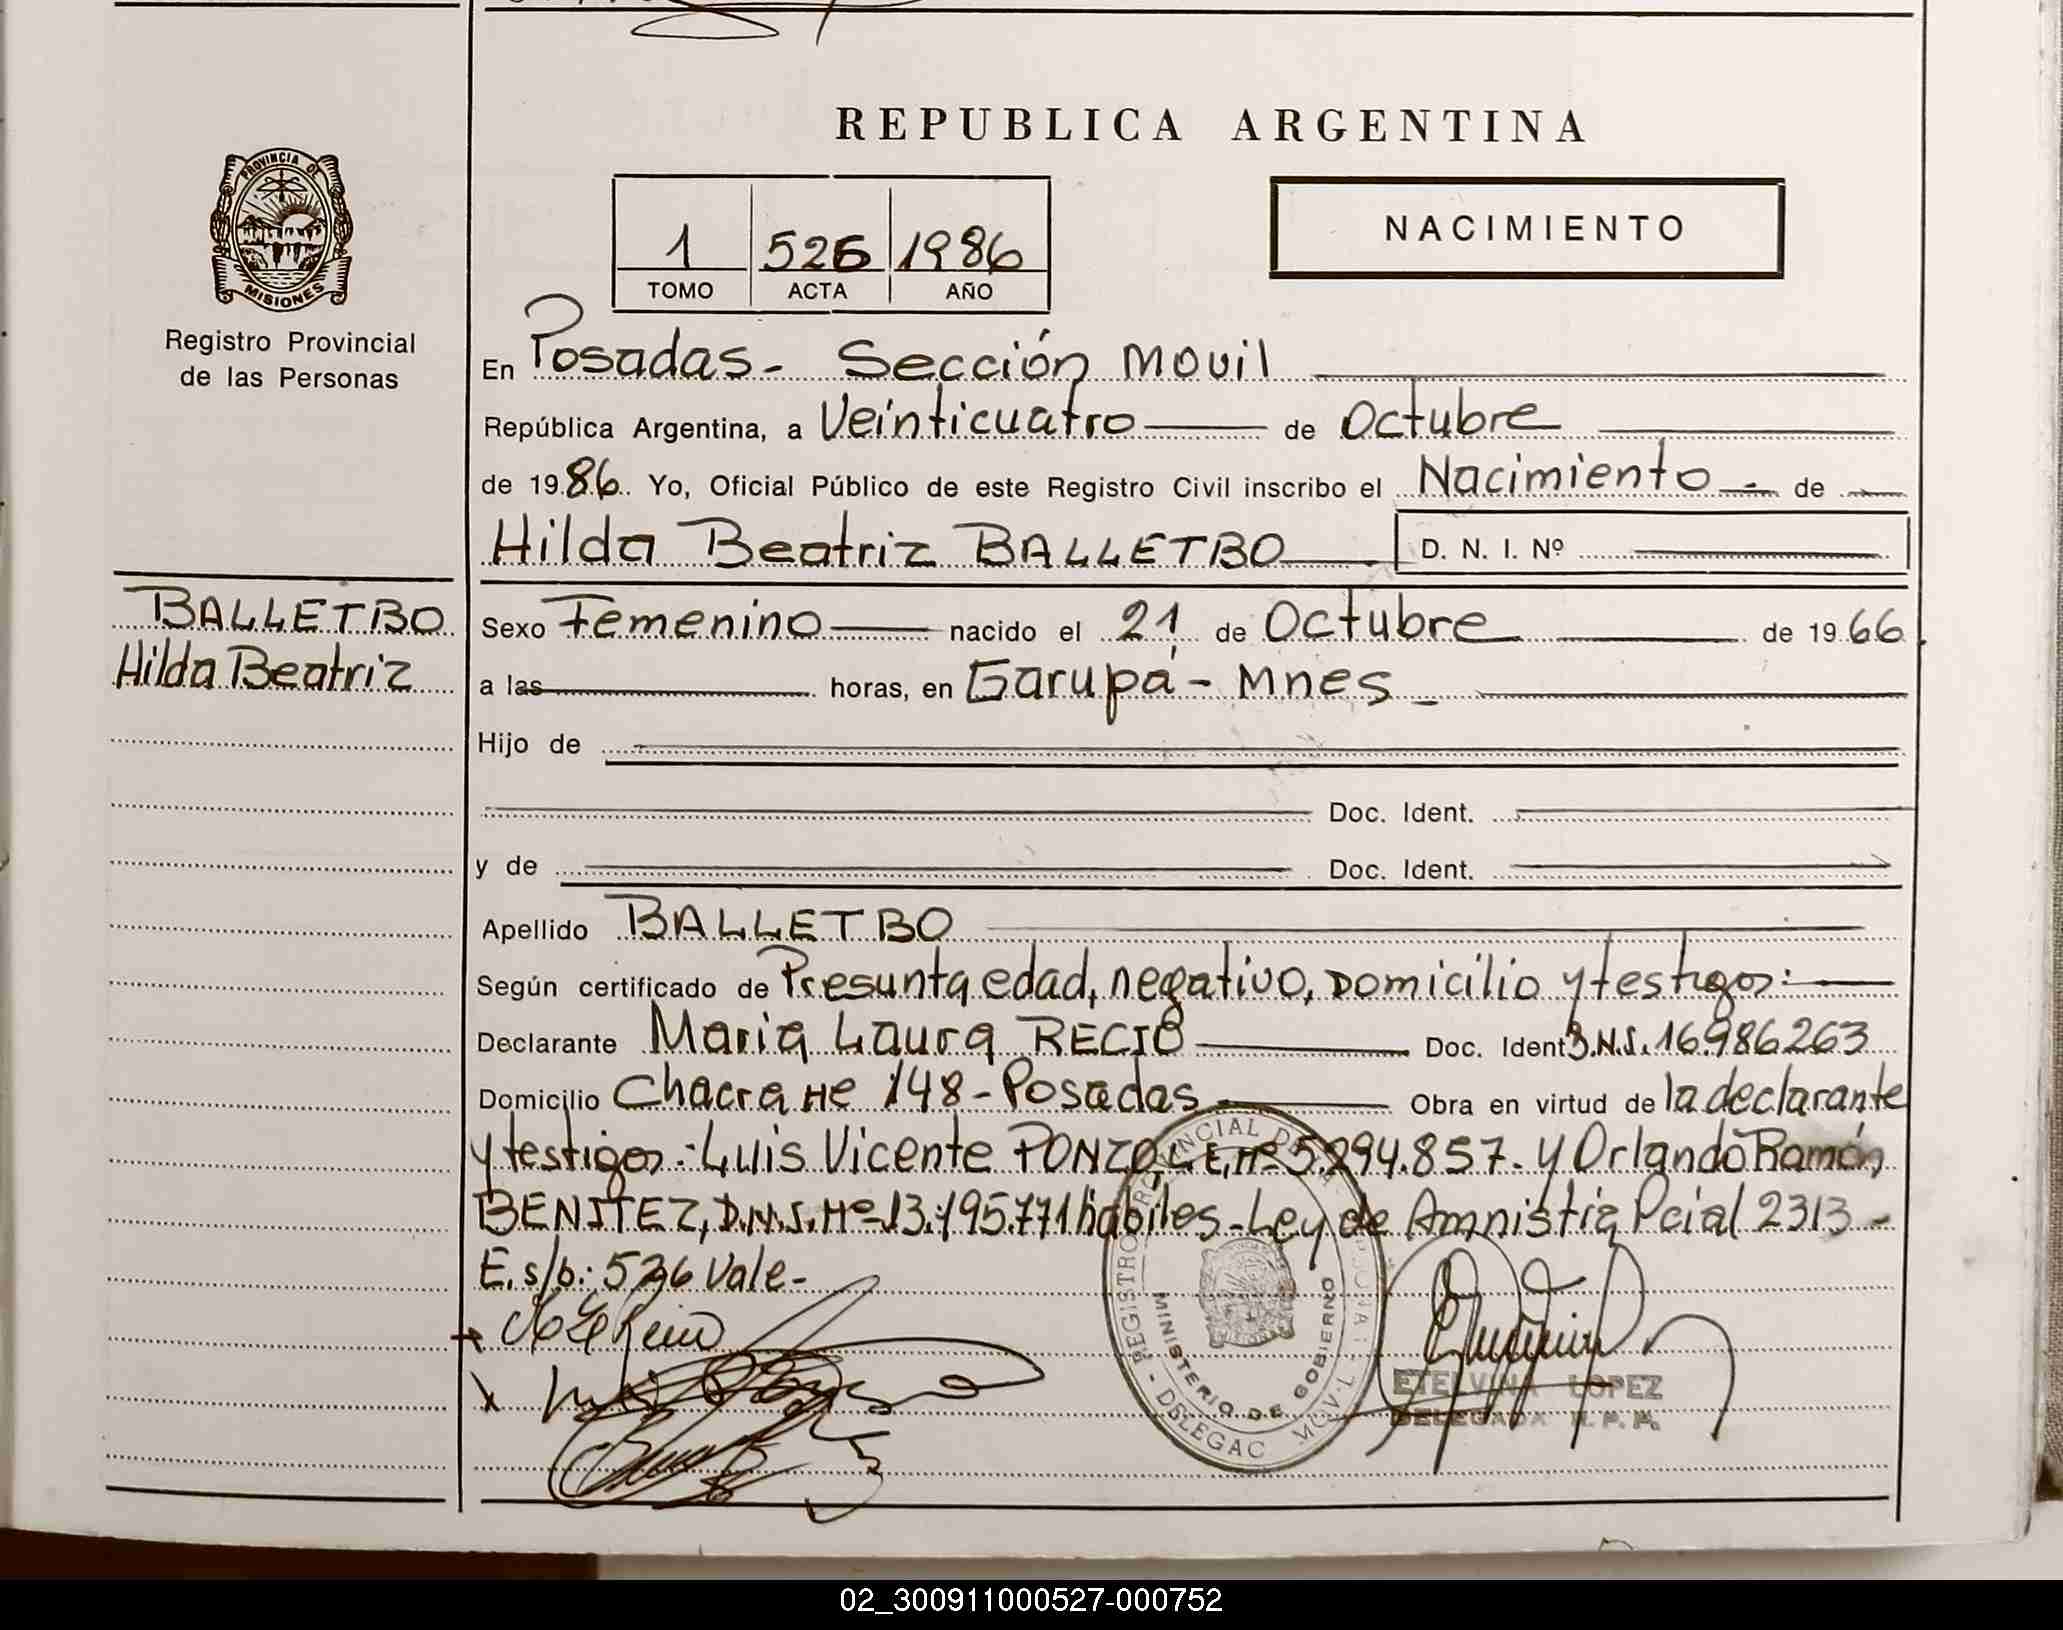 REPUBLICA ARGENTINA
PROVINCIA DE
MISIONES
Registro Provincial
de las Personas
1 526 1986
TOMO ACTA AÑO
NACIMIENTO
En Posadas - Sección Movil
República Argentina, a Veinticuatro de Octubre
de 1986. Yo, Oficial Público de este Registro Civil inscribo el Nacimiento - de
Hilda Beatriz BALLETBO D. N. I. Nº
BALLETBO
Hilda Beatriz
Sexo Femenino nacido el 21 de Octubre de 1966
a las horas, en Garupá - Mnes -
Hijo de
Doc. Ident.
y de Doc. Ident.
Apellido BALLETBO
Según certificado de Presunta edad, negativo, Domicilio y testigos:
Declarante Maria Laura RECIO Doc. Ident D.N.I. 16.986263
Domicilio Chacra Nº 148 - Posadas Obra en virtud de la declarante
y testigos: Luis Vicente PONZO, L.E. Nº 5.294.857. y Orlando Ramón
BENITEZ, D.N.I. Nº 13.195.771 hábiles - Ley de Amnistia Pcial 2313 -
E. s/b: 526 Vale -
REGISTRO PROVINCIAL DE
DELEGAC MOVIL
MINISTERIO DE GOBIERNO
ETELVINA LOPEZ
DELEGADA R. P. P.
02_300911000527-000752